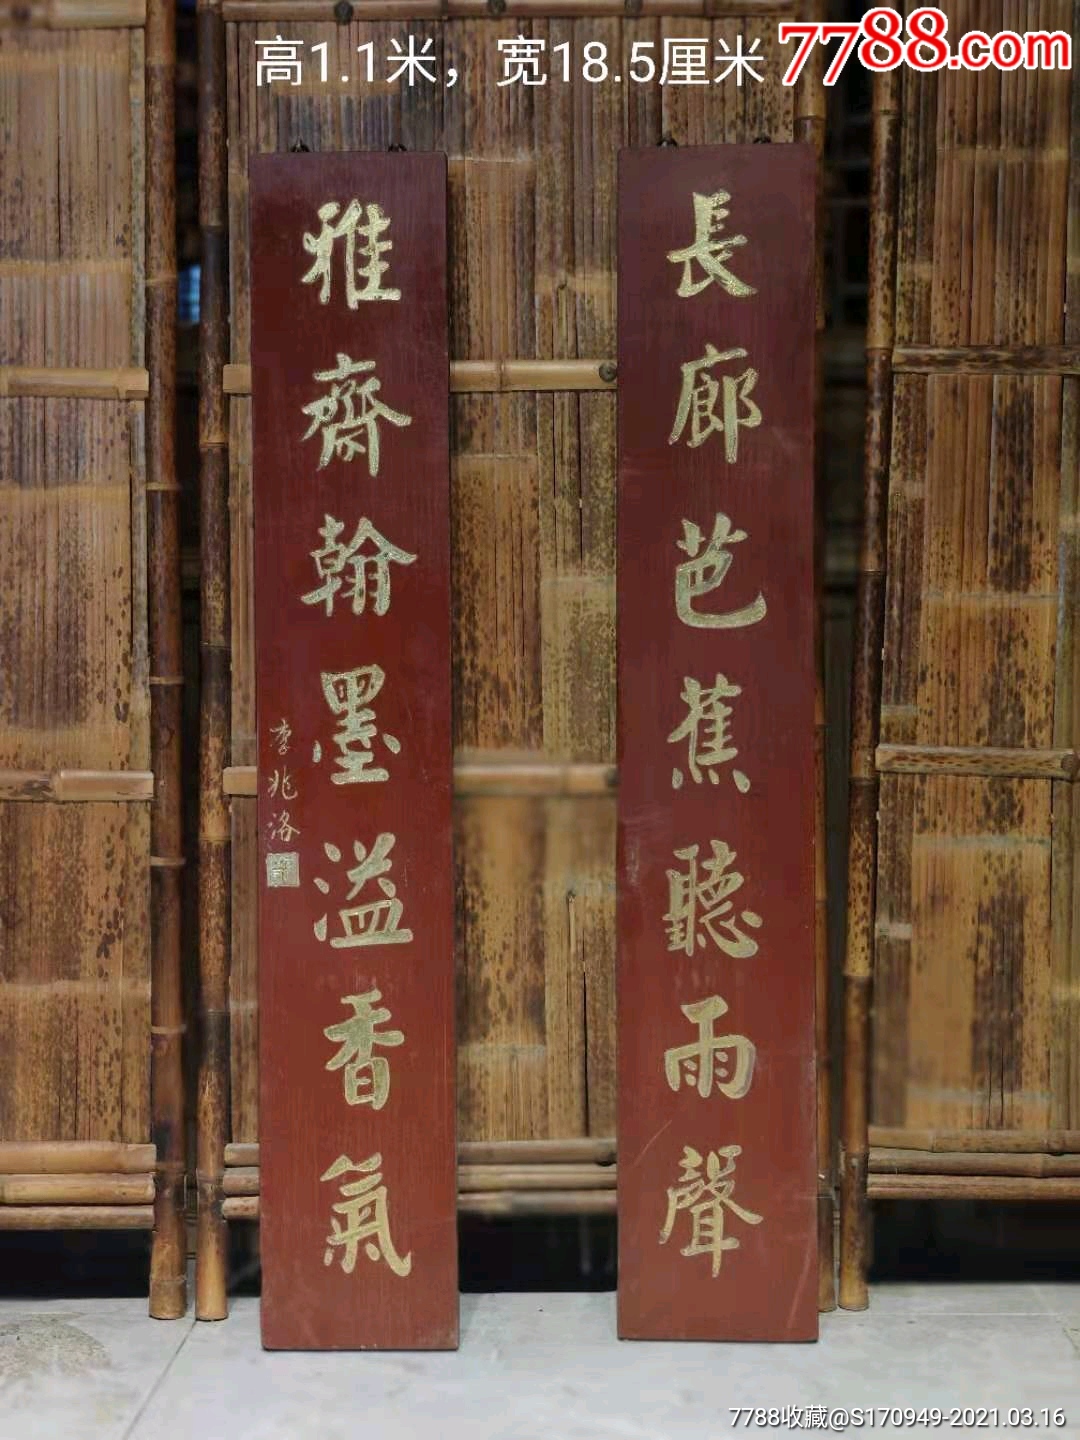 高1.1米，宽18.5厘米
7788.com
長廊芭蕉聽雨聲
雅齋翰墨溢香氣
李兆洛
7788收藏@S170949-2021.03.16